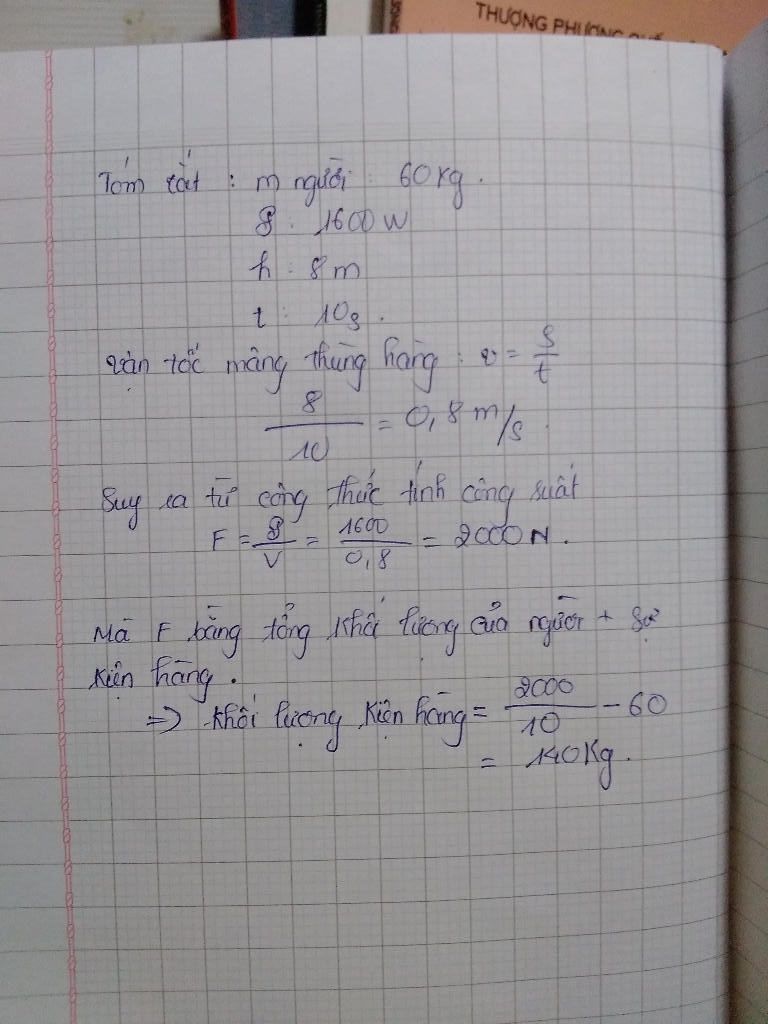 THƯỢNG PHƯƠNG
Tóm tắt : m người : 60kg.
P : 1600 W
h : 8 m
t : 10s.
vận tốc mâng thùng hàng : v = s/t
8/10 = 0,8 m/s.
Suy ra từ công thức tính công suất
F = P/V = 1600/0,8 = 2000N.
Mà F bằng tổng khối lượng của người + số
kiện hàng.
=> khối lượng kiện hàng = 2000/10 - 60
= 140Kg.